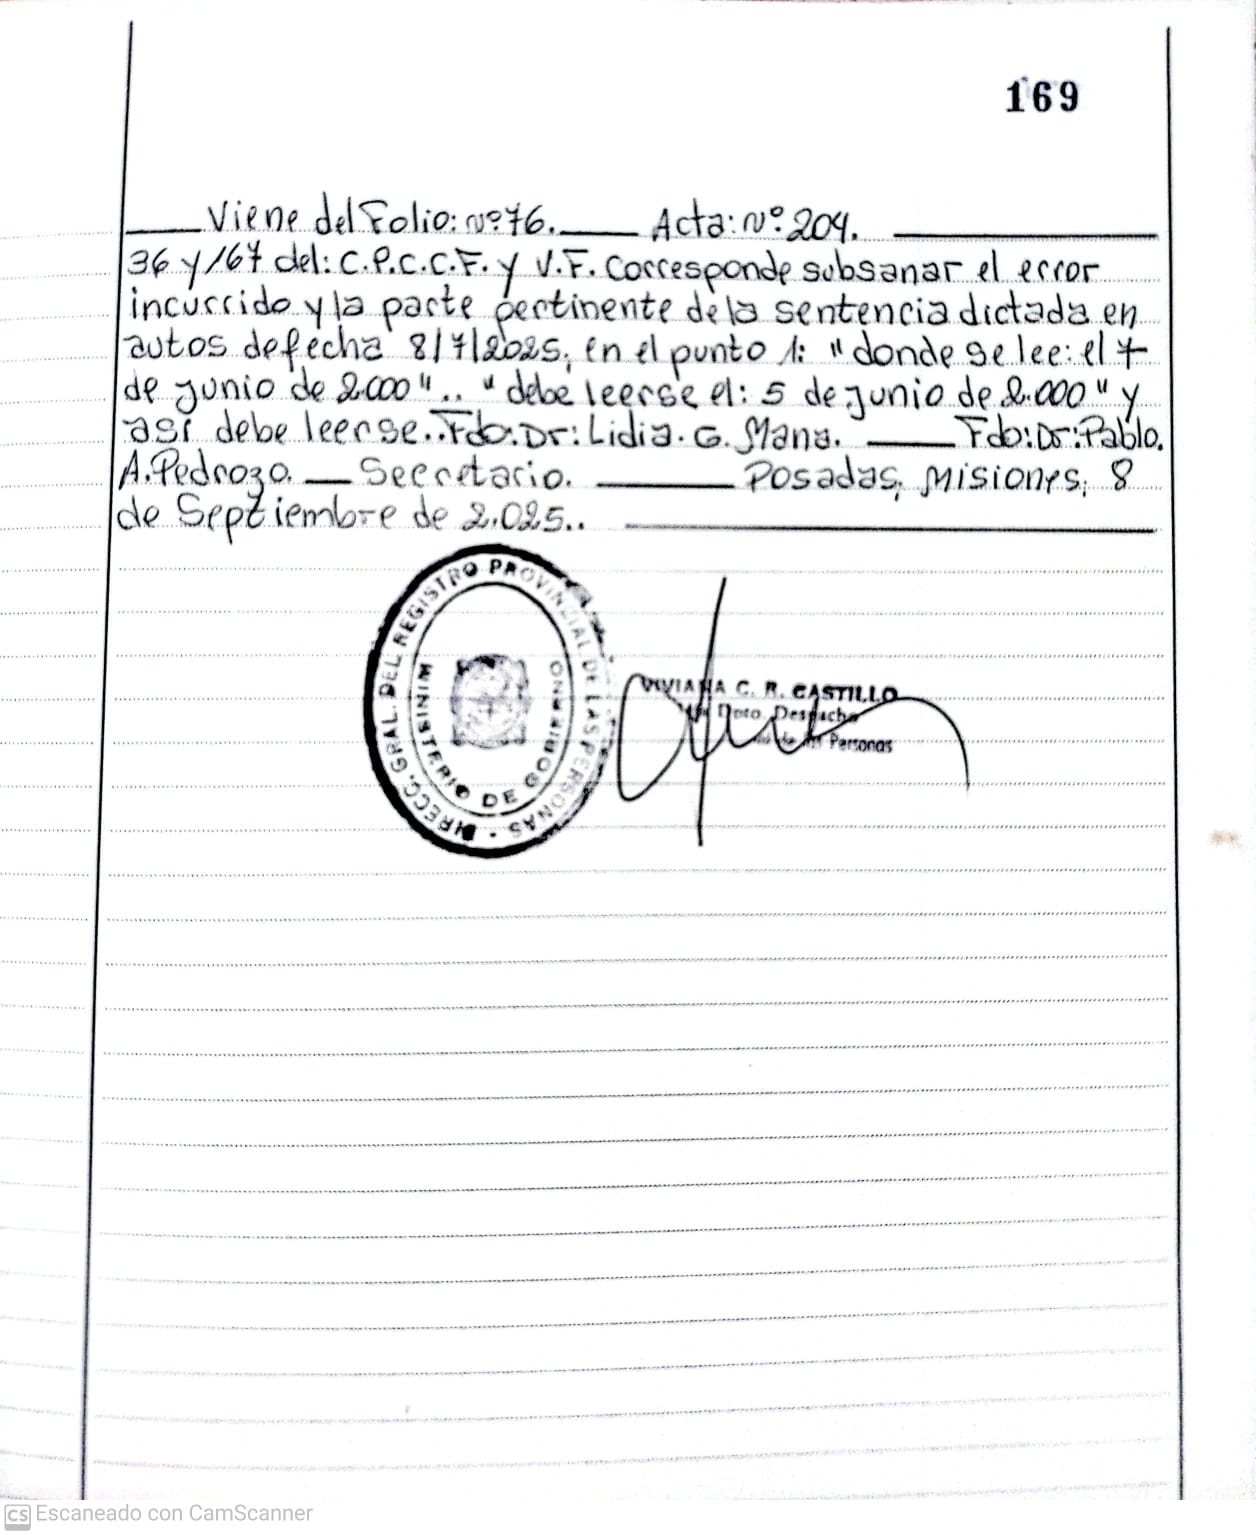 169
Viene del Folio: Nº 76. Acta: Nº 204.
36 y 167 del: C.P.C.C.F. y V.F. Corresponde subsanar el error
incurrido y la parte pertinente de la sentencia dictada en
autos de fecha 8/7/2025, en el punto 1: "donde se lee: el 7
de junio de 2000".. "debe leerse el: 5 de junio de 2.000" y
así debe leerse.. Fdo: Dr: Lidia. G. Mana. Fdo: Dr: Pablo.
A. Pedrozo. Secretario. Posadas, Misiones, 8
de Septiembre de 2.025..
DIRECC. GRAL. DEL REGISTRO PROVINCIAL DE LAS PERSONAS
MINISTERIO DE GOBIERNO
VIVIANA C. R. CASTILLO
Dpto. Despacho
Personas
CS Escaneado con CamScanner